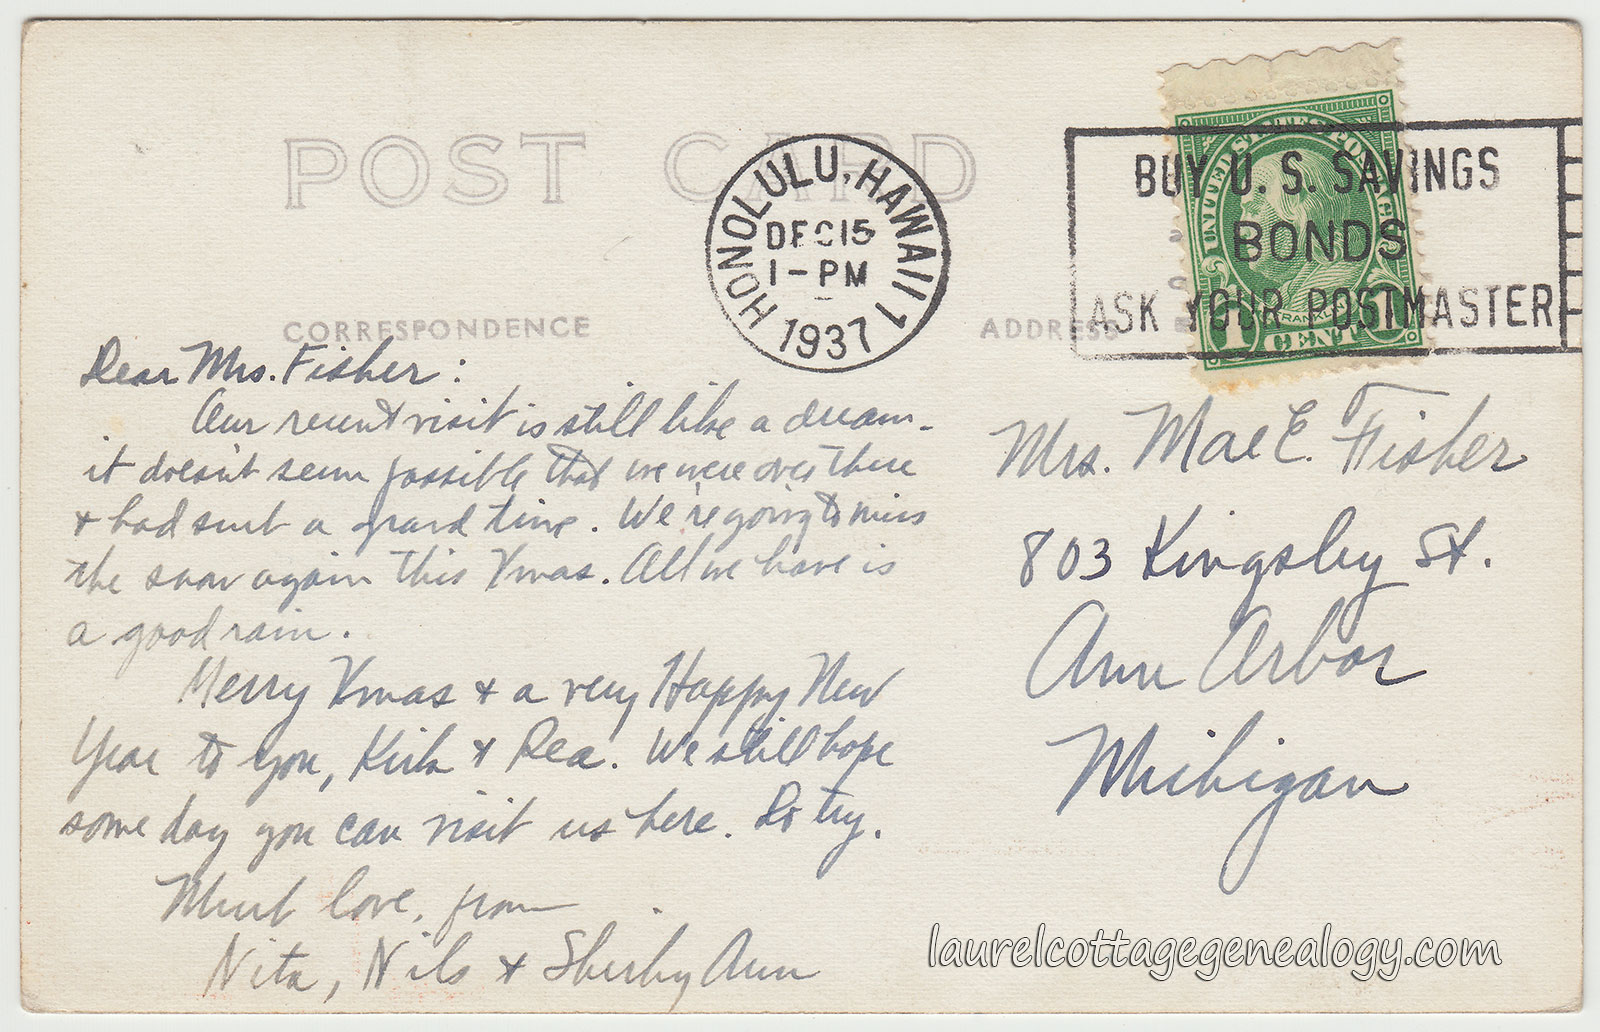 POST CARD
HONOLULU, HAWAII 1
DEC 15
1-PM
1937
BUY U. S. SAVINGS
BONDS
ASK YOUR POSTMASTER
UNITED STATES POSTAGE
FRANKLIN
1 CENT 1
CORRESPONDENCE
ADDRESS
Dear Mrs. Fisher:
Our recent visit is still like a dream -
it doesn't seem possible that we were over there
& had such a grand time. We're going to miss
the snow again this Xmas. All we have is
a good rain.
Merry Xmas & a very Happy New
Year to you, & Rea. We still hope
some day you can visit us here. Do try.
Much love, from
Nita, Nils & Shirley Ann
Mrs. Mae E. Fisher
803 Kingsley St.
Ann Arbor
Michigan
laurelcottagegenealogy.com